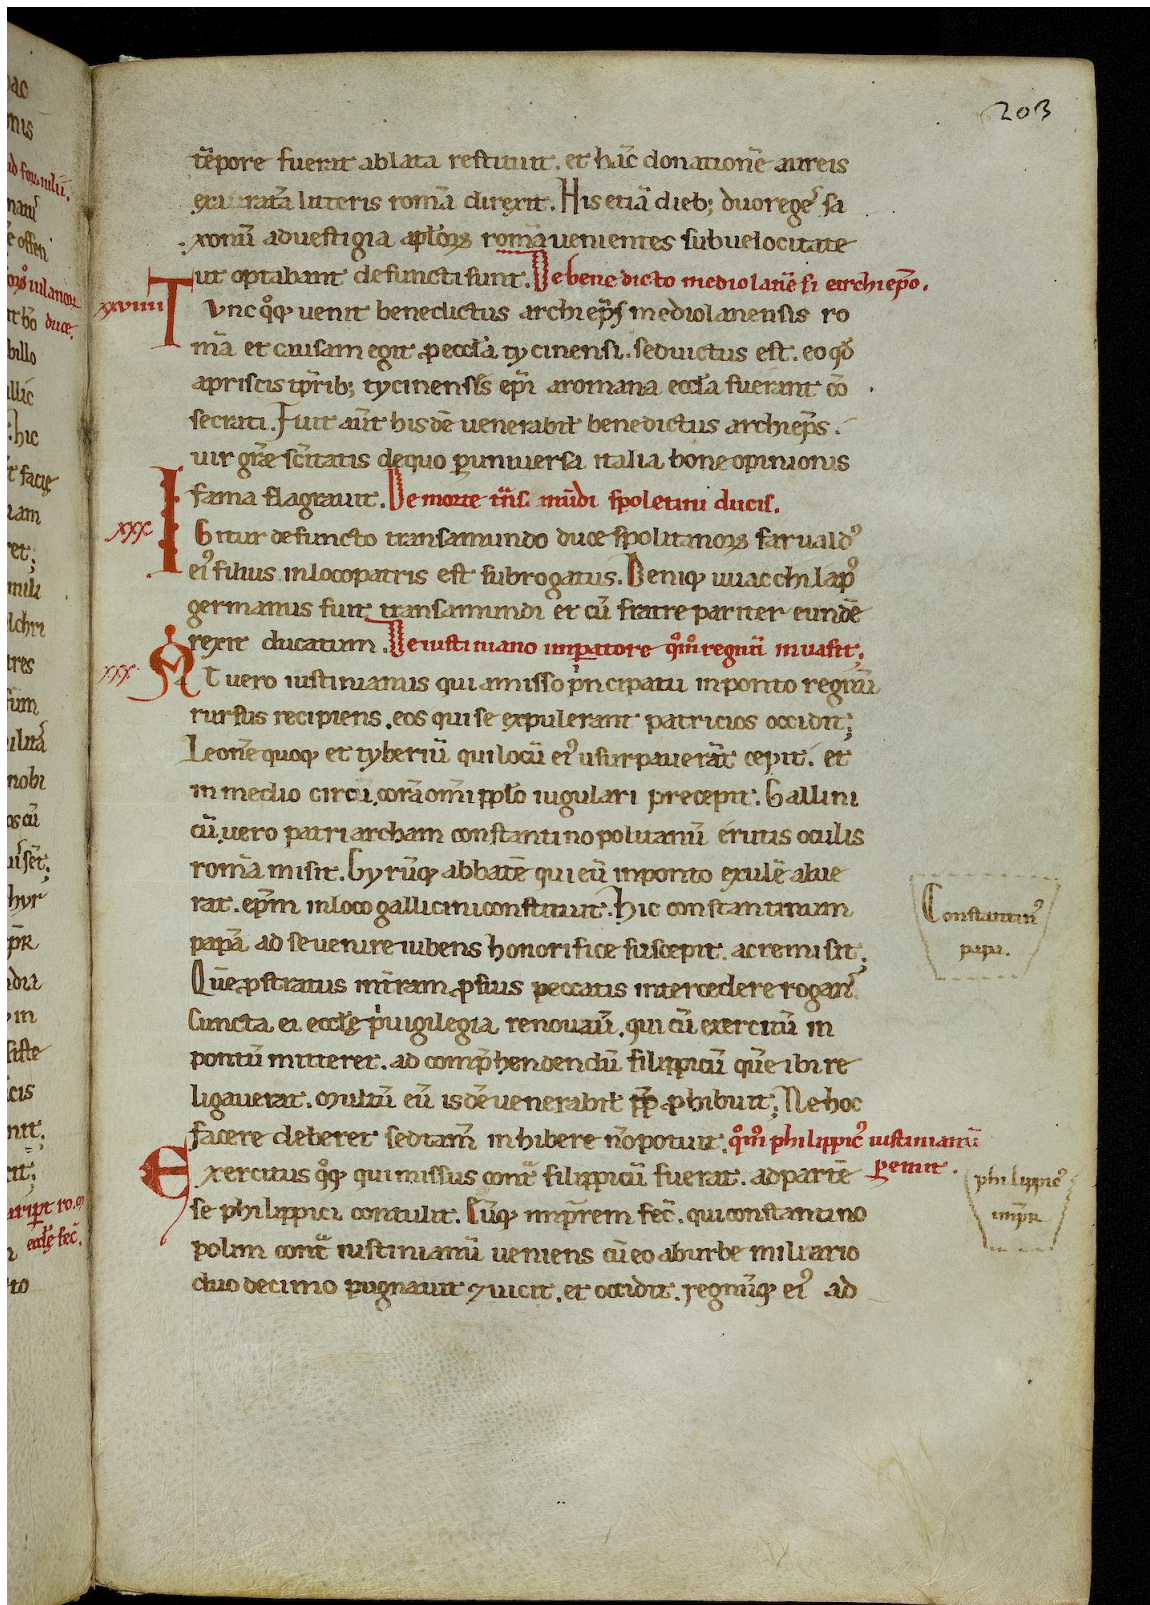 203
tēpore fuerat ablata restituit. et hāc donationē aureis
exaratā litteris romā direxit. His etiā dieb; duo regeˢ sa
xonū ad uestigia apl'oꝝ romā uenientes sub uelocitate
ut optabant defuncti sunt. De benedicto mediolanēsi archiep̄o.
xxviiii Tunc q̊q; uenit benedictus archiep̄s mediolanensis ro
mā et causam egit ꝓ eccl'a tycinensi. sed uictus est. eo qđ
a priscis tp̄rib; tycinensis ep̄i a romana eccl'a fuerant cō
secrati. Fuit aūt hisdē uenerabil' benedictus archiep̄s.
uir gr̄ae sc̄itatis de quo ꝑ uniuersa italia bone opinionis
fama flagrauit. De morte trās mūdi spoletini ducis.
xxx Igitur defuncto transamundo duce spolitanoꝝ faruald᾿
ei᾿ filius in loco patris est subrogatus. Deniq; uuacchilap᾿
germanus fuit transamundi et cū fratre pariter eundē
rexit ducatum. De iustiniano imꝑatore q̊m̄ regnū inuasit;
xxx. At uero iustinianus qui amisso pⁱncipatu in ponto regnū
rursus recipiens. eos qui se expulerant patricios occidit;
Leonē quoq; et tyberiū qui locū ei᾿ usurpauerāt cepit. et
in medio circū. corā om̄i ppl'o iugulari precepit. Gallini
cū. uero patriarcham constantinopolitanū erutis oculis
romā misit. Cyrūq; abbatē qui eū in ponto exulē alue
rat. ep̄m in loco gallicini constituit. Hic constantinum
papā ad se uenire iubens honorifice suscepit. ac remisit;
Quē ꝓstratus in t̄ram ꝓ suis peccatis intercedere roganˢ
Cuncta ei eccl'ę pⁱuigilegia renouauͥ. qui cū exercitū in
pontū mitteret. ad comp̄hendendū filippicū quē ibi re
ligauerat. multū eū isdē uenerabil' pp̄ ꝓhibuit; Ne hoc
facere deberet sed tam̄ inhibere nō potuit. q̊m̄ philippic᾿ iustinianū
ꝑemit.
Exercitus q̊q; qui missus cont̄ filippicū fuerat. ad partē
se philippici contulit. Eūq; imp̄rem fec̄. qui constantino
polim cont̄ iustinianū ueniens cū eo ab urbe miliario
duodecimo pugnauit ⁊ uicit. et occidit. regnūq; ei᾿ ad
Constantin᾿
papa.
philippic᾿
imp̄r